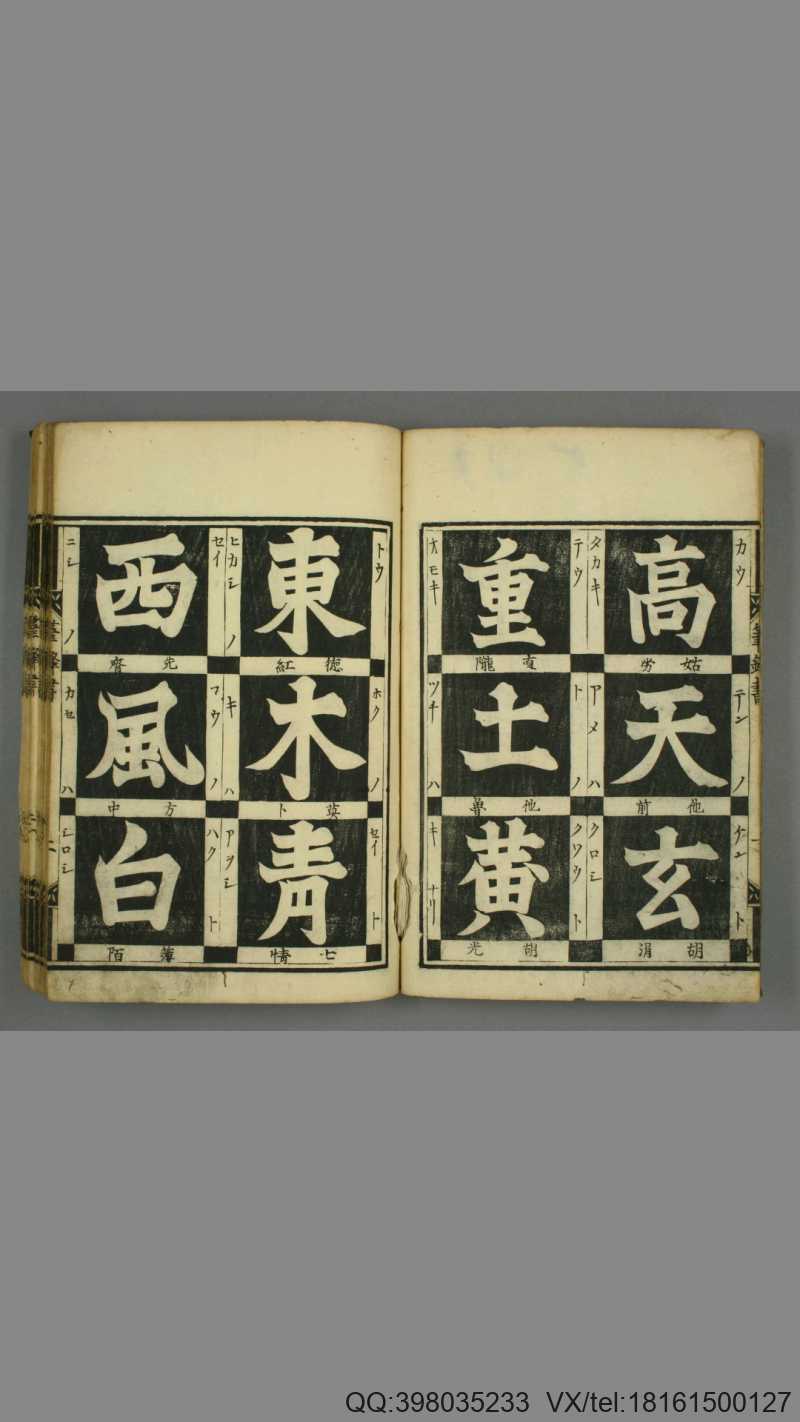 高
カウ
タカキ
姑勞
天
テンノ
アメハ
他前
玄
ケント
クロシ
胡涓
重
テウ
オモキ
直隴
土
トノ
ツチハ
他魯
黄
クワウト
キナリ
胡光
東
トウ
ヒカシノ
德紅
木
ホクノ
キハ
莫卜
青
セイト
アヲシ
七情
西
セイ
ニシノ
先齊
風
フウノ
カセハ
方中
白
ハクト
シロシ
薄陌
QQ:398035233 VX/tel:18161500127